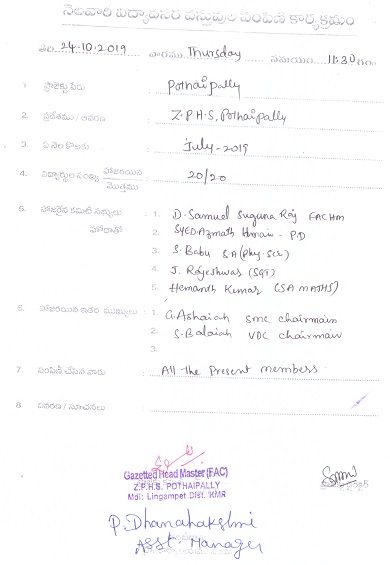 నెలవారి విద్యావసర వస్తువుల పంపిణి కార్యక్రమం
తేది 24.10.2019 వారము Thursday సమయం 11:30 గం
1. ప్రాజెక్టు పేరు : Pothaipally
2. ప్రదేశము / ఆవరణ : Z.P.H.S, Pothaipally
3. ఏ నెల కొరకు : July-2019
4. విద్యార్థుల సంఖ్య హాజరయిన / మొత్తము : 20/20
5. హాజరైన కమిటి సభ్యులు : 1. D. Samuel Suguna Raj FACHM
హోదాతో 2. SYED Azmath Husain - P.D
3. S. Babu S.A (Phy. Sci)
4. J. Rajeshwar (SGT)
5. Hemanth Kumar (SA MATHS)
6. హాజరయిన ఇతర ముఖ్యులు : 1. G. Ashaiah SMC chairman
2. S. Balaiah VDC chairman
3.
7. పంపిణి చేసిన వారు : All The Present members
8. వివరణ / సూచనలు :
Gazetted Head Master (FAC)
Z.P.H.S. POTHAIPALLY
Mdl: Lingampet Dist. KMR
P. Dhanalakshmi
Asst. Manager